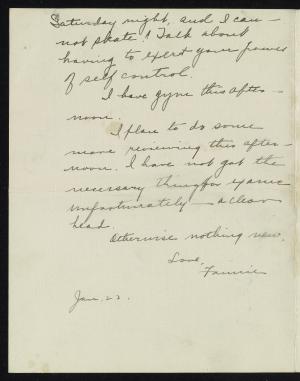 Saturday night, and I can-
not skate! Talk about
having to exert your power
of self control.
I have gym this after-
noon.
I plan to do some
more reviewing this after-
noon. I have not got the
necessary thing for exams
unfortunately - a clear
head.
Otherwise nothing new.
Love,
Fannie
Jan. 23.